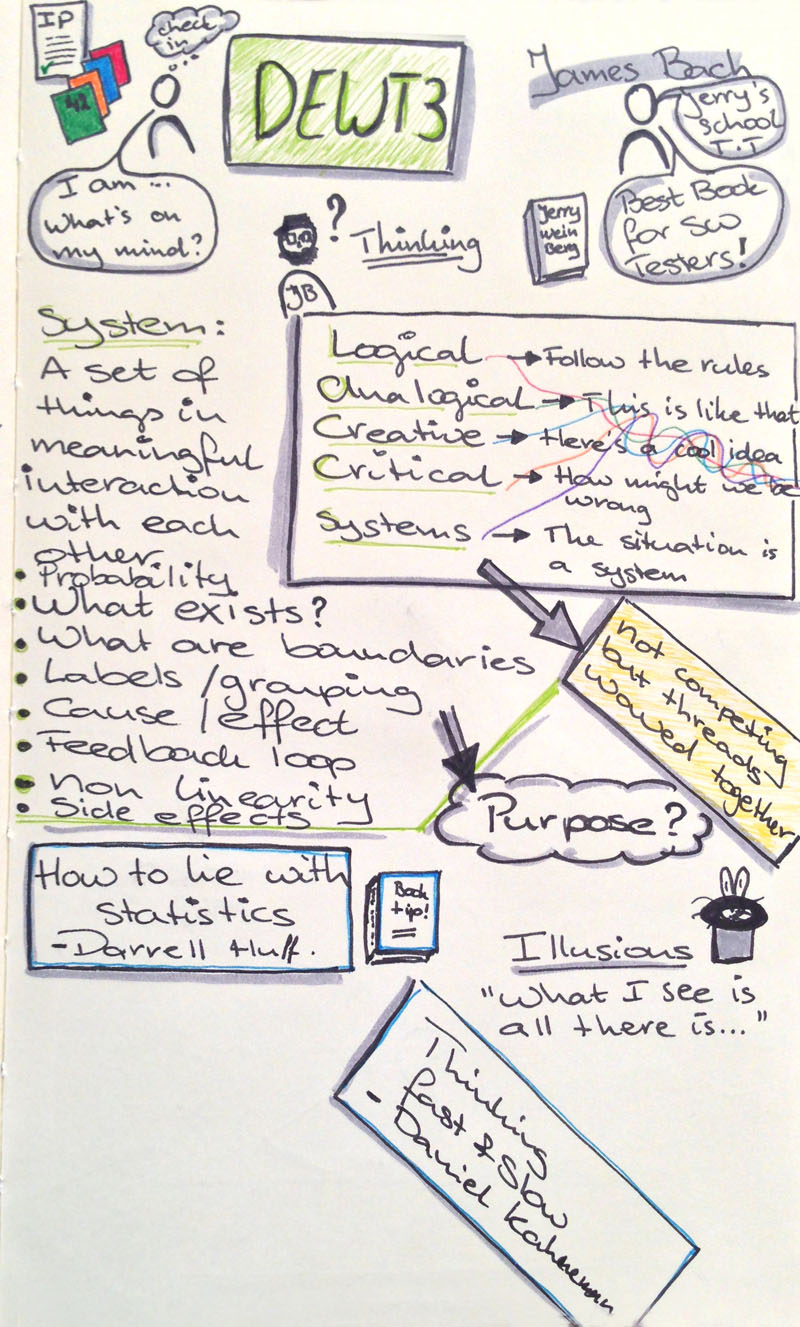 IP
42
check
in
DEWT3
James Bach
Jerry's
school
T.T
I am ...
what's on
my mind?
Jerry
wein
Berg
Best Book
for SW
Testers!
?
Thinking
JB
System:
A set of
things in
meaningful
interaction
with each
other
• Probability
• What exists?
• What are boundaries
• Labels / grouping
• Cause / effect
• Feedback loop
• Non linearity
• Side effects
Logical → Follow the rules
Analogical → This is like that
Creative → Here's a cool idea
Critical → How might we be
wrong
Systems → The situation is
a system
not competing
but threads
waved together
Purpose?
How to lie with
Statistics
- Darrell Huff.
Book
tip!
Illusions
"What I see is
all there is..."
Thinking
fast & slow
- Daniel Kahneman